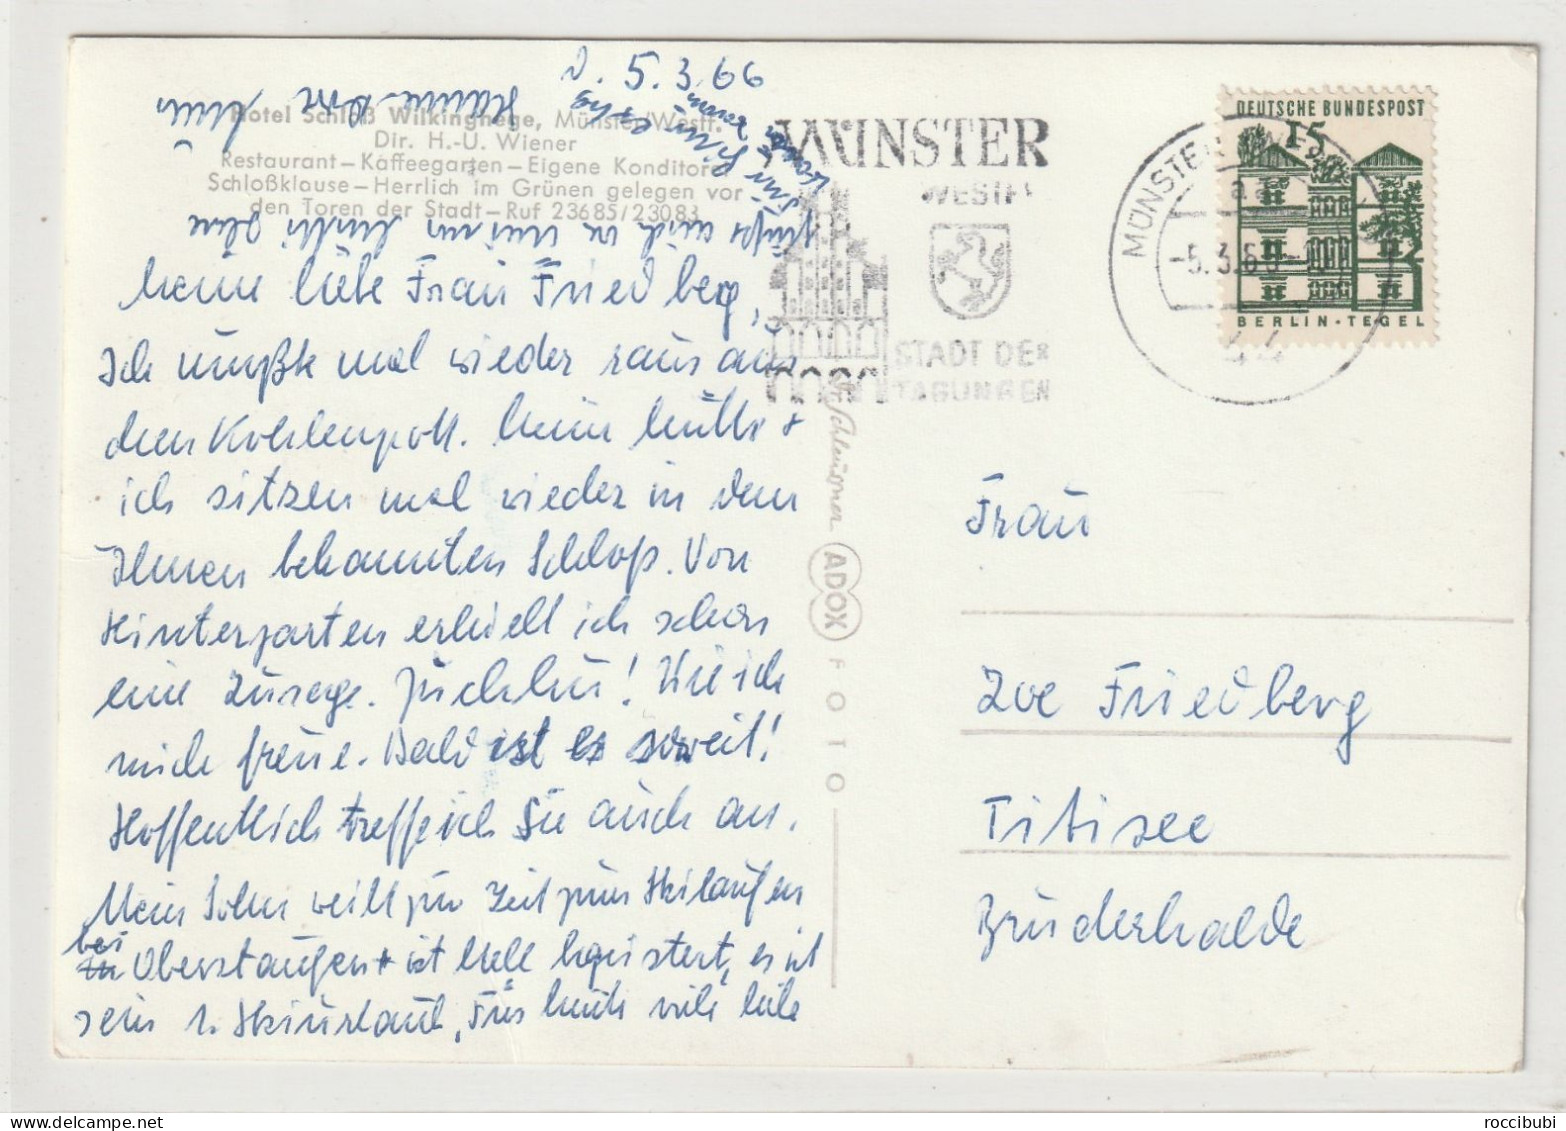 d. 5.3.66
Hotel Schloß Wilkinghege, Münster/Westf.
Dir. H.-U. Wiener
Restaurant – Kaffeegarten – Eigene Konditorei
Schloßklause – Herrlich im Grünen gelegen vor
den Toren der Stadt – Ruf 23685/23083
Meine liebe Frau Friedberg,
Ich mußte mal wieder raus aus
dem Kohlenpott. Meine Mutti +
ich sitzen mal wieder in dem
Ihnen bekannten Schloß. Von
Hinterzarten erhielt ich schon
eine Zusage. Juchhu! Wie ich
mich freue. Bald ist es soweit!
Hoffentlich treffe ich Sie auch an.
Mein Sohn weilt zur Zeit zum Skilaufen
bei Oberstaufen + ist hell begeistert, es ist
sein 1. Skiurlaub. Für heute viele liebe
MÜNSTER
WESTF.
STADT DER
TAGUNGEN
MÜNSTER (WESTF)
-5.3.66-
44
DEUTSCHE BUNDESPOST
15
BERLIN-TEGEL
Schleusner
ADOX
FOTO
Frau
Zoe Friedberg
Titisee
Bruderhalde
roccibubi